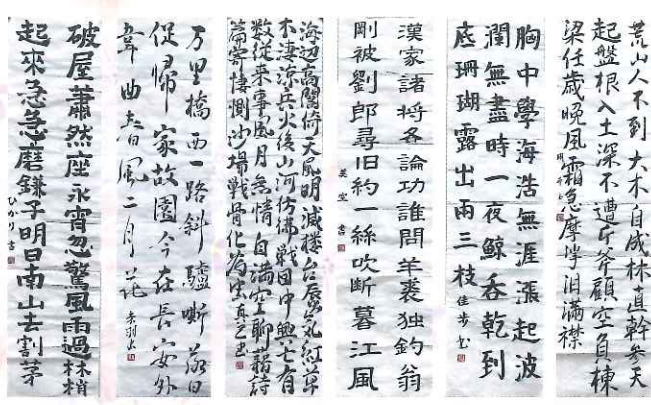 荒山人不到大木自成林直幹参天
起盤根入土深不遭斤斧顧空負棟
梁任歳晩風霜急摩挲泪満襟
胸中學海浩無涯漲起波
瀾無盡時一夜鯨呑乾到
底珊瑚露出兩三枝 佳步書
漢家諸将各論功誰問羊裘独釣翁
剛被劉郎尋旧約一絲吹断暮江風 美空書
海辺高閣倚天風明滅楼台蜃気紅草
木凄涼兵火後山河仿佛戦図中興亡有
数従来事風月無情自満空聊藉詩
篇寄悽惻沙場戦骨化為虫 真之書
万里橋西一路斜驢嘶落日
促帰家故園今在長安外
韋曲春風二月花
破屋蕭然座永宵忽驚風雨過林梢
起來急急磨鎌子明日南山去割茅 ひかり書